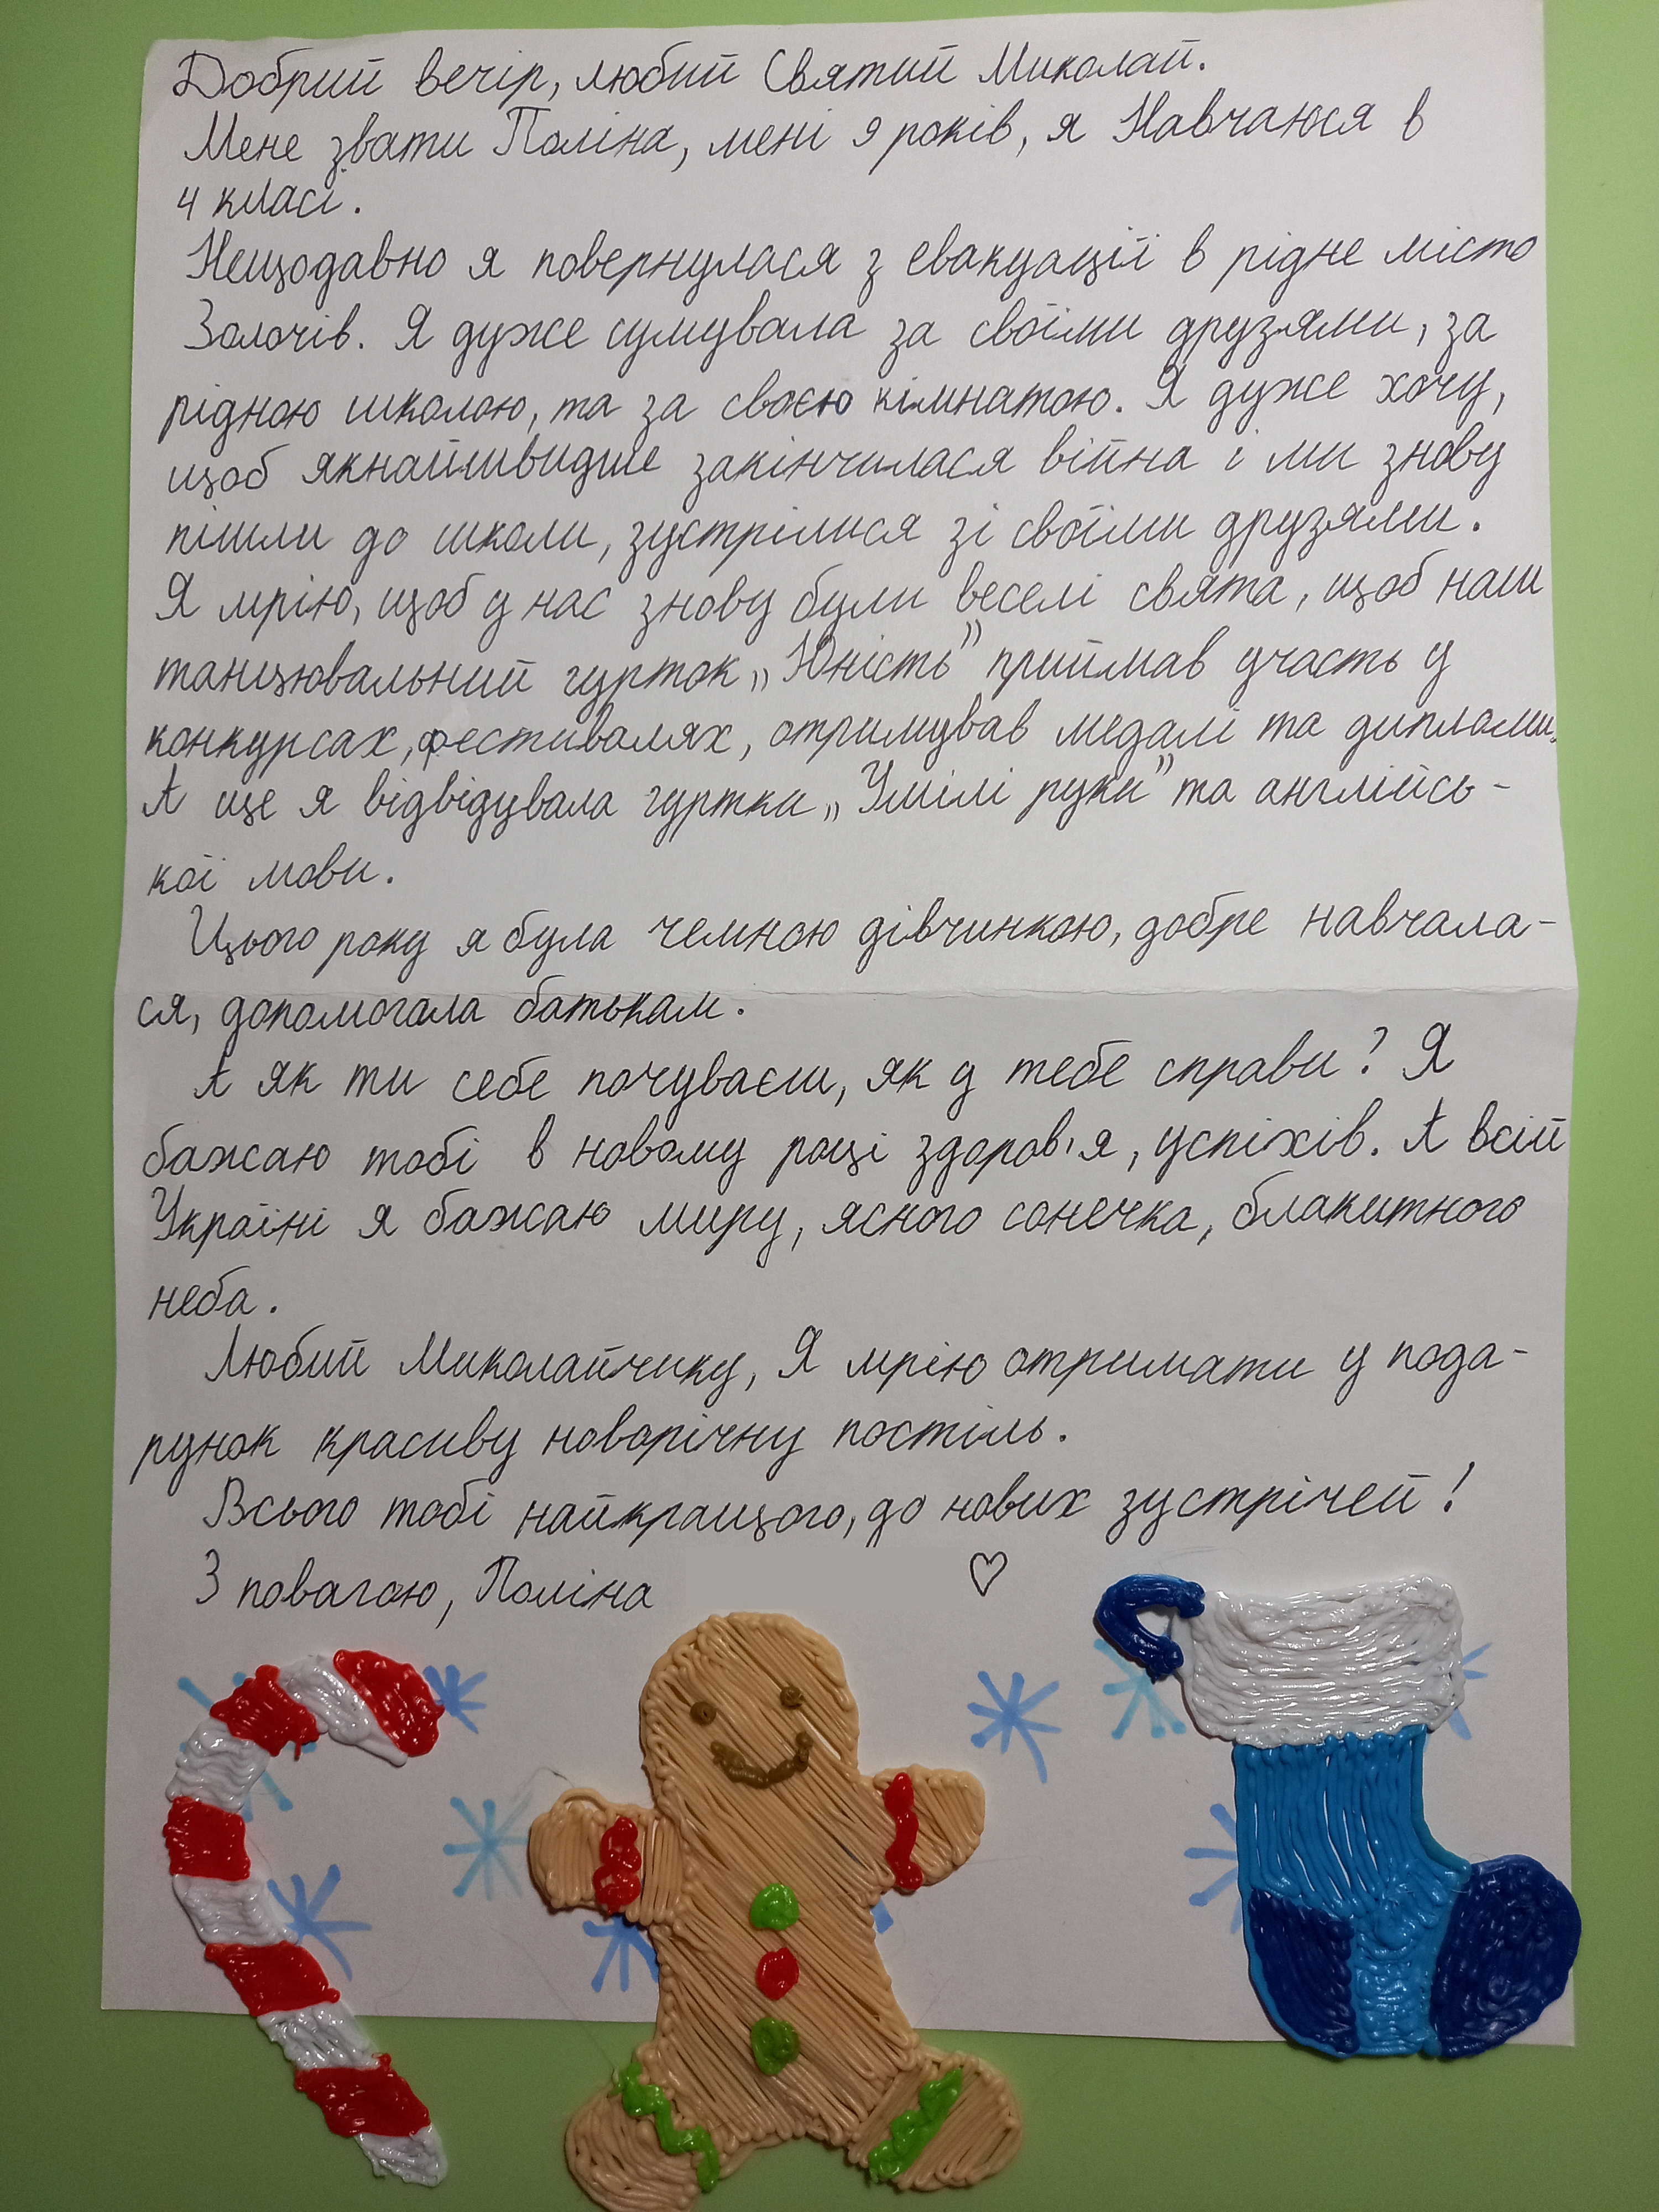 Добрий вечір, любий Святий Миколай.
Мене звати Поліна, мені 9 років, я Навчаюся в
4 класі.
Нещодавно я повернулася з евакуації в рідне місто
Золочів. Я дуже сумувала за своїми друзями, за
рідною школою, та за своєю кімнатою. Я дуже хочу,
щоб якнайшвидше закінчилася війна і ми знову
пішли до школи, зустрілися зі своїми друзями.
Я мрію, щоб у нас знову були веселі свята, щоб наш
танцювальний гурток „Юність” приймав участь у
конкурсах, фестивалях, отримував медалі та дипломи.
А ще я відвідувала гуртки „Умілі руки” та англійсь-
кої мови.
Цього року я була чемною дівчинкою, добре навчала-
ся, допомогала батькам.
А як ти себе почуваєш, як у тебе справи? Я
бажаю тобі в новому році здоров'я, успіхів. А всій
Україні я бажаю миру, ясного сонечка, блакитного
неба.
Любий Миколайчику, Я мрію отримати у пода-
рунок красиву новорічну постіль.
Всього тобі найкращого, до нових зустрічей!
З повагою, Поліна